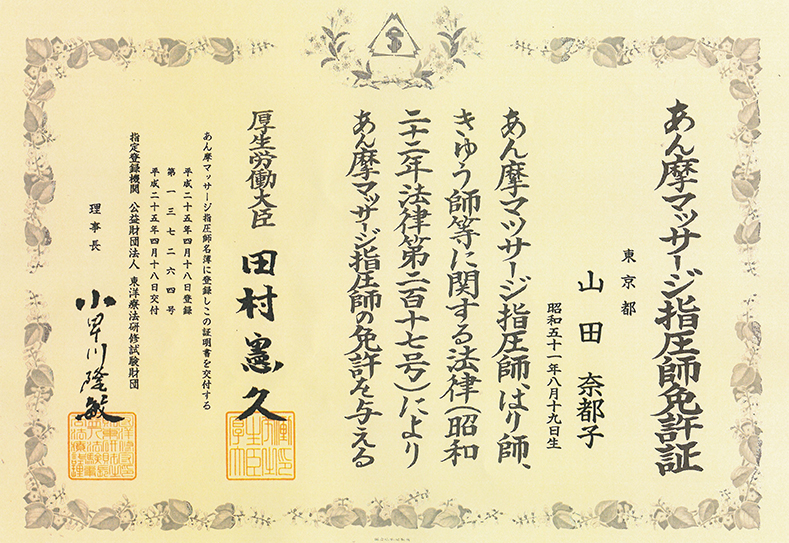 あん摩マッサージ指圧師免許証
東京都
山田 奈都子
昭和五十一年八月十九日生
あん摩マッサージ指圧師、はり師、
きゅう師等に関する法律(昭和
二十二年法律第二百十七号)により
あん摩マッサージ指圧師の免許を与える
厚生労働大臣 田村憲久
あん摩マッサージ指圧師名簿に登録しこの証明書を交付する
平成二十五年四月十八日登録
第一三七二六四号
平成二十五年四月十八日交付
指定登録機関 公益財団法人 東洋療法研修試験財団
理事長 小早川隆敏